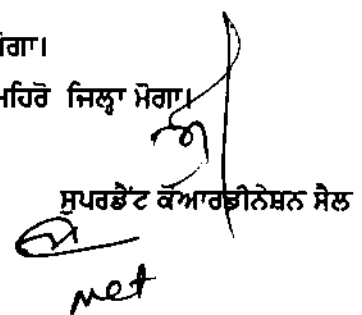 ਮੋਗਾ।
ਮਹਿਰੋ ਜਿਲ੍ਹਾ ਮੋਗਾ।
ਸੁਪਰਡੈਂਟ ਕੋਆਰਡੀਨੇਸ਼ਨ ਸੈਲ